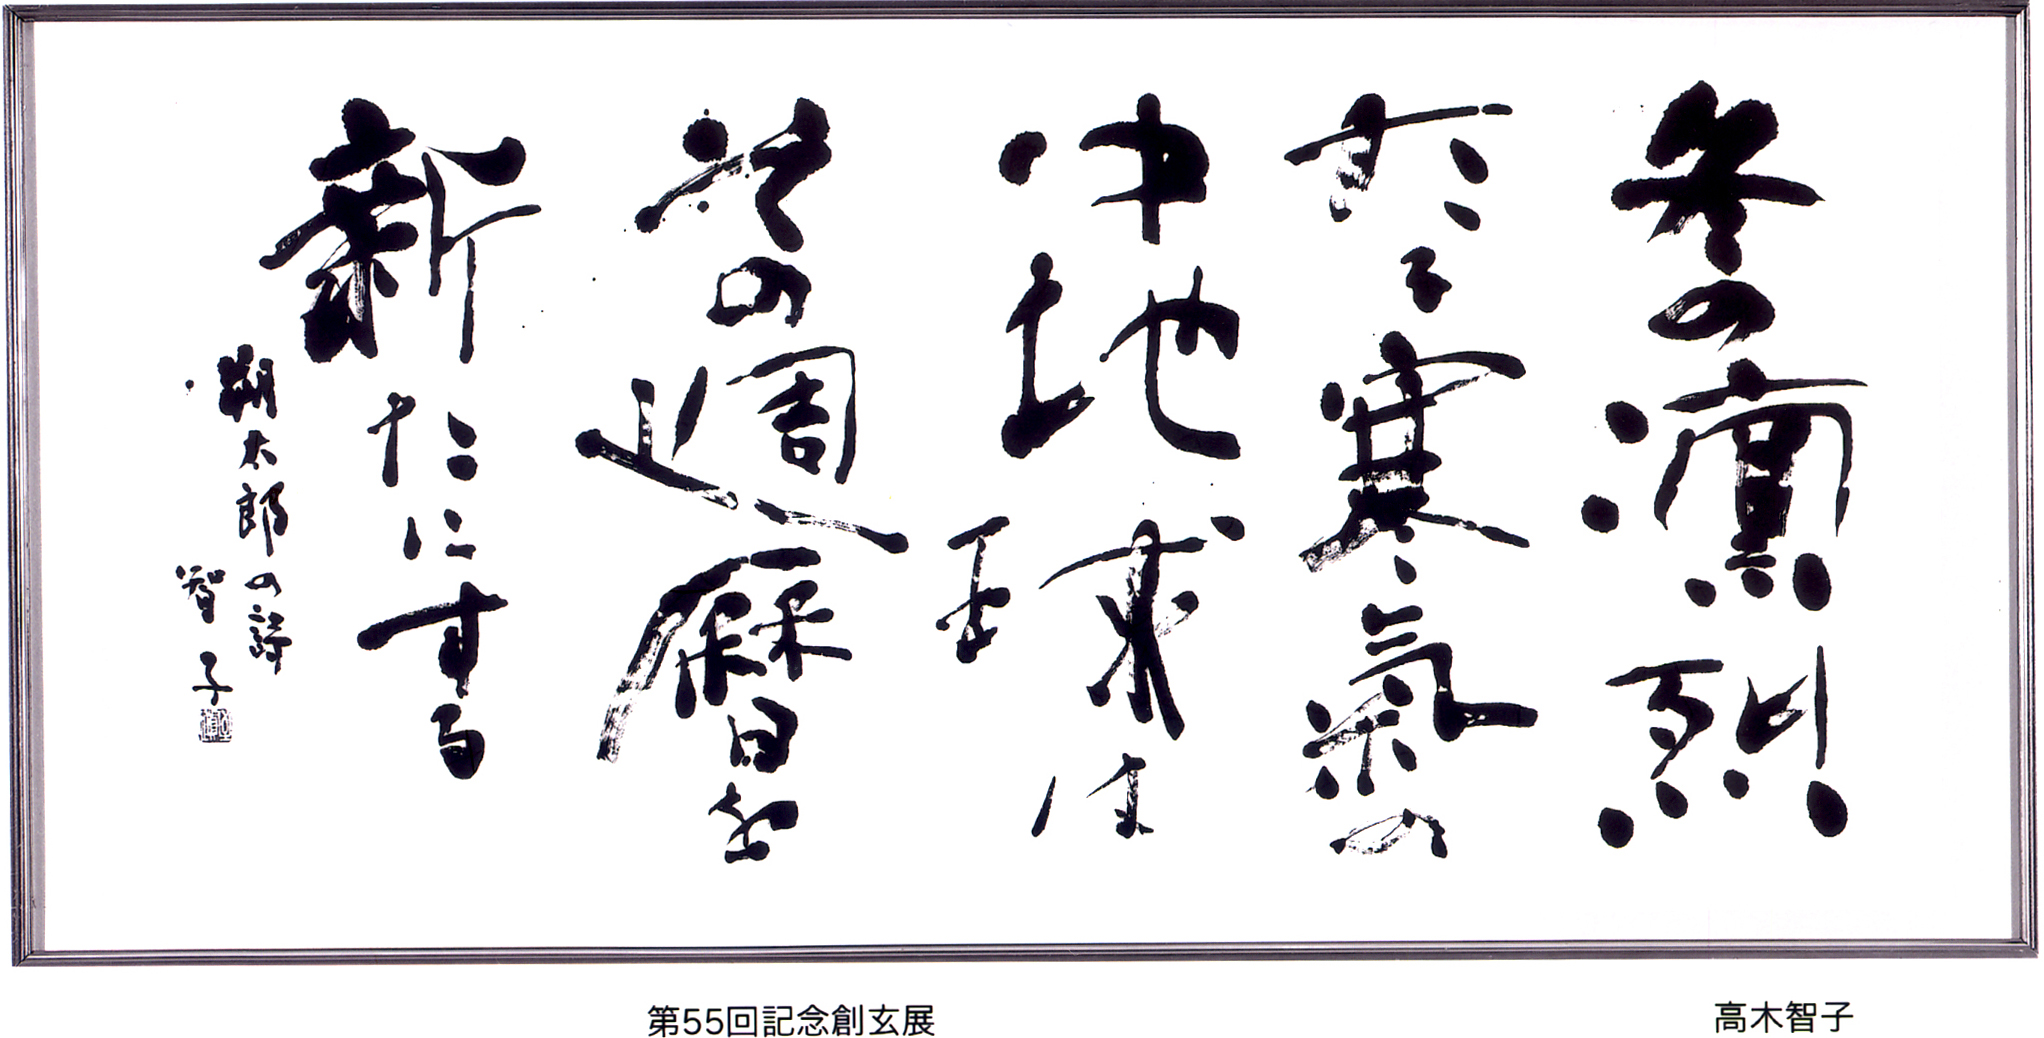 冬の凛烈
たる寒氣の
中地球は
その週暦を
新たにする
朔太郎の詩
智子
第55回記念創玄展
高木智子